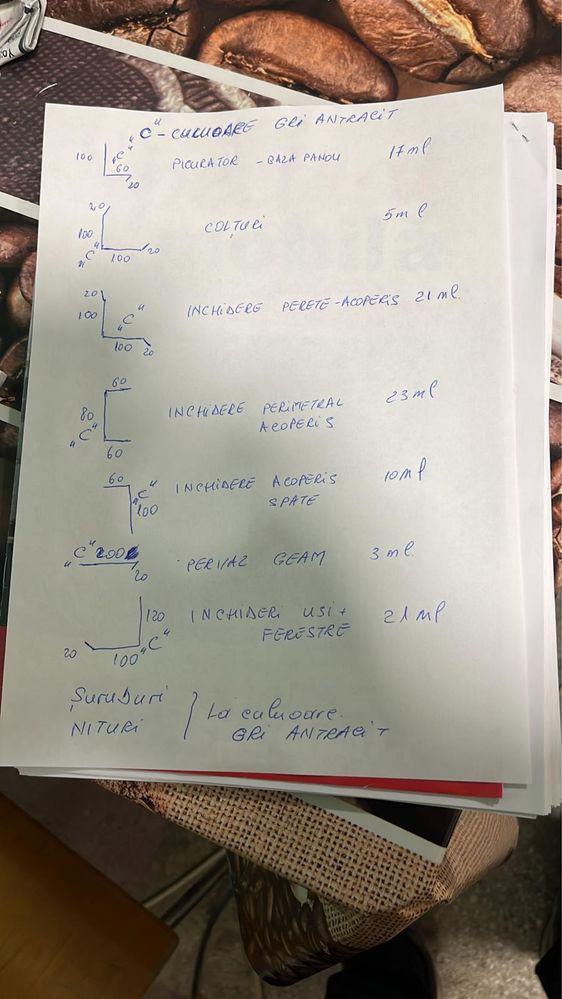 "C" - CULOARE GRI ANTRACIT
100 "C" 60 20 PICURATOR - BAZA PANOU 17 ml
20 100 "C" 100 20 COLȚURI 5 ml
20 100 "C" 100 20 INCHIDERE PERETE-ACOPERIS 21 ml.
60 80 "C" 60 INCHIDERE PERIMETRAL 23 ml
ACOPERIS
60 "C" 100 INCHIDERE ACOPERIS 10 ml
SPATE
"C" 200 20 PERVAZ GEAM 3 ml.
120 20 100 "C" INCHIDERI USI + 21 ml
FERESTRE
ȘuruBuri
NITURI
La culuoare.
GRI ANTRACIT